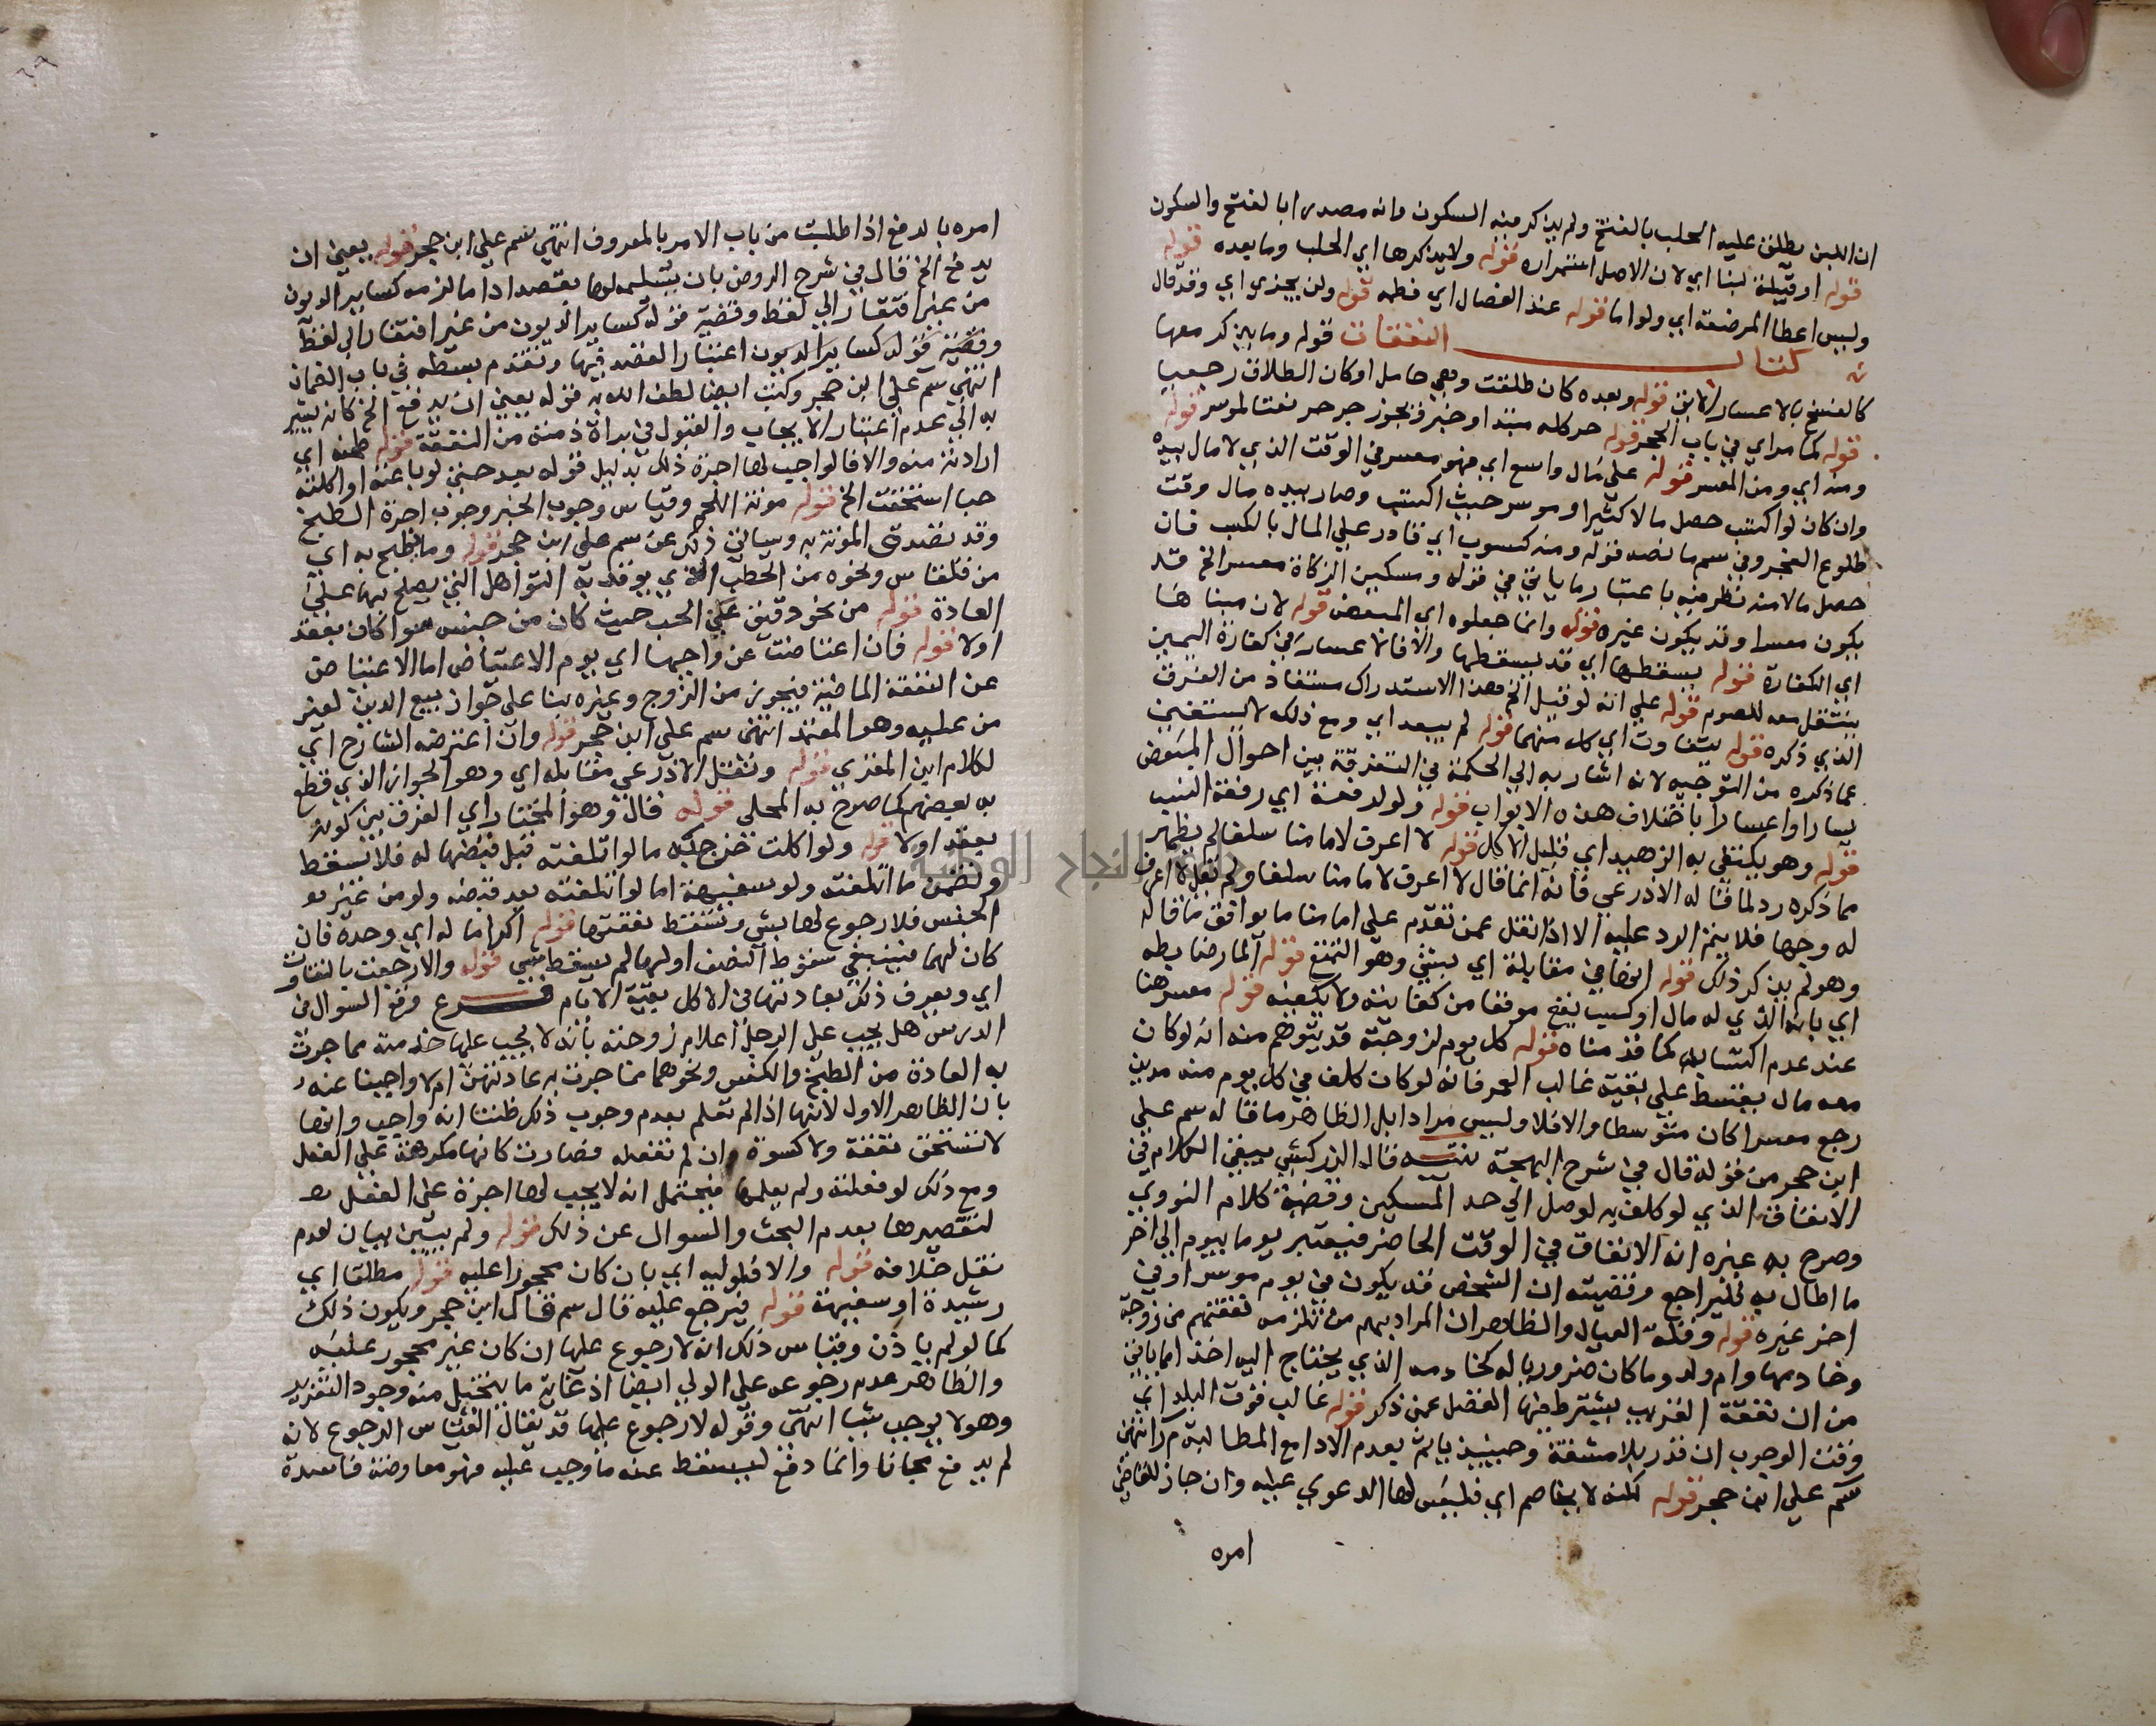 ان اللبن يطلق عليه الحلب بالفتح ولم يذكر فيه السكون وانه مصدر ابالفتح والسكون
قوله او قبلة لبنا اي لان الاصل استمراره قوله ولا يذكرها اي الحلب وما بعده قوله
وليس اعطا المرضعة اي ولو اما قوله عند الفصال اي فطمه قوله ولن يجزي اي وقد قال
كتاب النفقات قوله وما يذكر معها
كالفسخ بالاعسار الاتي قوله وبعده كان طلقت وهي حامل او كان الطلاق رجعيا
قوله كما مر اي في باب الحجر قوله حر كله مبتدا او خبر فنجوز جر حر نعتا لموسر قوله
ومنه اي ومن المعسر قوله على مال واسع اي فهو معسر في الوقت الذي لا مال بيده
وان كان لو اكتسب حصل مالا كثيرا وموسر حيث اكتسب وصار بيده مال وقت
طلوع الفجر وفي سم ما نصه قوله ومنه كسوب اي قادر على المال بالكسب فان
حصل مالا منه نظر فيه باعتبار ما ياتي في قوله ومسكين الزكاة معسر الخ قد
يكون معسرا وقد يكون غيره قوله وانما جعلوه اي المبعض قوله لان مبناها
اي الكفارة قوله يسقطها اي قد يسقطها والا فالاعسار في كفارة اليمين
ينتقل معه للصوم قوله على انه لو قيل الخ هذا الاستدراك مستفاد من الفرق
الذي ذكره قوله يتفاوت اي كل منهما قوله لم يبعد اي ومع ذلك لا يستغنى
عما ذكره من التوجيه لانه اشار به الى الحكمة في التفرقة بين احوال المبعض
يسارا واعسارا باختلاف هذه الابواب قوله ولو لدفعة اي رفعة النسب
قوله وهو يكتفي به الزهيد اي قليل الاكل قوله لا اعرف لامامنا سلفا لم يظهر
مما ذكره رد لما قاله الاذرعي فانه انما قال لا اعرف لامامنا سلفا ولم يقل لا اعرف
له وجها فلا يتم الرد عليه الا اذا نقل عمن تقدم على امامنا ما يوافق ما قاله
وهو لم يذكر ذلك قوله ايضا في مقابلة اي يبتني وهو التمتع قوله الما رضا بطه
اي بانه الذي له مال او كسب يقع موقعا من كفايته ولا يكفيه قوله معسر هنا
عند عدم اكتسابه كما قدمناه قوله كل يوم لزوجته قد يتوهم منه انه لو كان
معه مال يقسط على بقية غالب العمر فانه لو كان كلف في كل يوم منه مدين
رجع معسرا كان متوسطا والا فلا وليس مرادا بل الظاهر ما قاله سم على
ابن حجر من قوله قال في شرح البهجة تنبيه قال الزركشي يبقى الكلام في
الانفاق الذي لو كلف به لوصل الى حد المسكين وقضية كلام النووي
وصرح به غيره انه الانفاق في الوقت الحاضر فيعتبر يوما بيوم الى اخر
ما اطال به فليراجع وقضيته ان الشخص قد يكون في يوم موسرا وفي
اخر غيره قوله وقلة العيال والظاهر ان المراد بهم من تلزمه نفقتهم من زوجة
وخادمها وام ولد وما كان ضروريا له كخادمه الذي يحتاج اليه اخذا مما ياتي
من ان نفقة القريب يشترط فيها الفضل عمن ذكر قوله غالب قوت البلد اي
وقت الوجوب ان قدر بلا مشقة وحينئذ ياثم بعدم الادا مع المطالبة م ر انتهى
سم على ابن حجر قوله لكنه لا يخاصم اي فليس لها الدعوي عليه وان جاز للقاضي
امره
امره بالدفع اذا طلبت من باب الامر بالمعروف انتهى سم على ابن حجر قوله يعني ان
يدفع الخ قال في شرح الروض بان يسلمه لها بقصد ادا ما لزمه كساير الديون
من غير افتقار الى لفظ وقضية قوله كساير الديون من غير افتقار الى لفظ
وقضية قوله كساير الديون اعتبار القصد فيها وتقدم بسطه في باب الضمان
انتهى سم على ابن حجر وكتب ايضا لطف الله به قوله يعني ان يدفع الخ كانه يشير
به الى عدم اعتبار الايجاب والقبول في براة ذمته من النفقة قوله طحنه اي
ارادته منه والا فالواجب لها اجرة ذلك بدليل قوله بعد حتى لو باعته او اكلته
حبا استحقت الخ قوله مونة اللحم وقياس وجوب الخبز وجوب اجرة الطبخ
وقد تقدم المونة به وسياتي ذلك عن سم على ابن حجر قوله وما يطبخ به اي
من قلقاس ونحوه من الحطب الذي يوقد به التواهل التي يصلح بها على
العادة قوله من نحو دقيق على الحب حيث كان من جنسه سوا كان بعقد
اولا قوله فان اعتاضت عن واجبها اي يوم الاعتياض اما الاعتياض
عن النفقة الماضية فيجوز من الزوج وغيره بنا على جواز بيع الدين لغير
من عليه وهو المعتمد انتهى سم على ابن حجر قوله وان اعترضه الشارح اي
لكلام ابن المقري قوله ونقل الاذرعي مقابله اي وهو الجواز الذي قطع
به بعضهم كما صرح به المحلي قوله قال وهو المختار اي الفرق بين كونه
بعقد اولا قوله ولو اكلت خرج به ما لو اتلفته قبل قبضها له فلا تسقط
وتضمن ما اتلفته ولو سفيهة اما لو اتلفته بعد قبضه ولو من غير
الجنس فلا رجوع لها بشي وتسقط نفقتها قوله اكراما له اي وحده فان
كان لهما فينبغي سقوط النصف او لهما لم يسقط شي قوله والا رجعت بالتفاوت
اي ويعرف ذلك بعادتها في الاكل بقية الايام فرع وقع السوال في
الدرس هل يجب على الرجل اعلام زوجته بانه لا يجب عليها خدمته مما جرت
به العادة من الطبخ والكنس ونحوهما مما جرت به عادتهن ام لا واجبنا عنه
بان الظاهر الاول لانها اذا لم تعلم بعدم وجوب ذلك ظنت انه واجب وانها
لا تستحق نفقة ولا كسوة ان لم تفعله فصارت كانها مكرهة على الفعل
ومع ذلك لو فعلته ولم يعلمها فيحتمل انه لا يجب لها اجرة على الفعل
لتقصيرها بعدم البحث والسوال عن ذلك قوله ولم يبين بيان لعدم
نقل خلافه قوله والا فلوليه اي بان كان محجورا عليه قوله مطلقا اي
رشيدة او سفيهة قوله فيرجع عليه قال سم قال ابن حجر ويكون ذلك
كما لو لم ياذن وقياس ذلك انه لا رجوع عليها ان كان غير محجور عليه
والظاهر عدم رجوعه على الولي ايضا اذ غاية ما يتخيل منه وجود التغرير
وهو لا يوجب شيا انتهى وقوله لا رجوع عليها قد يقال القياس الرجوع لانه
لم يدفع مجانا وانما دفع ليسقط عنه ما وجب عليه فهو معاوضة فاسدة